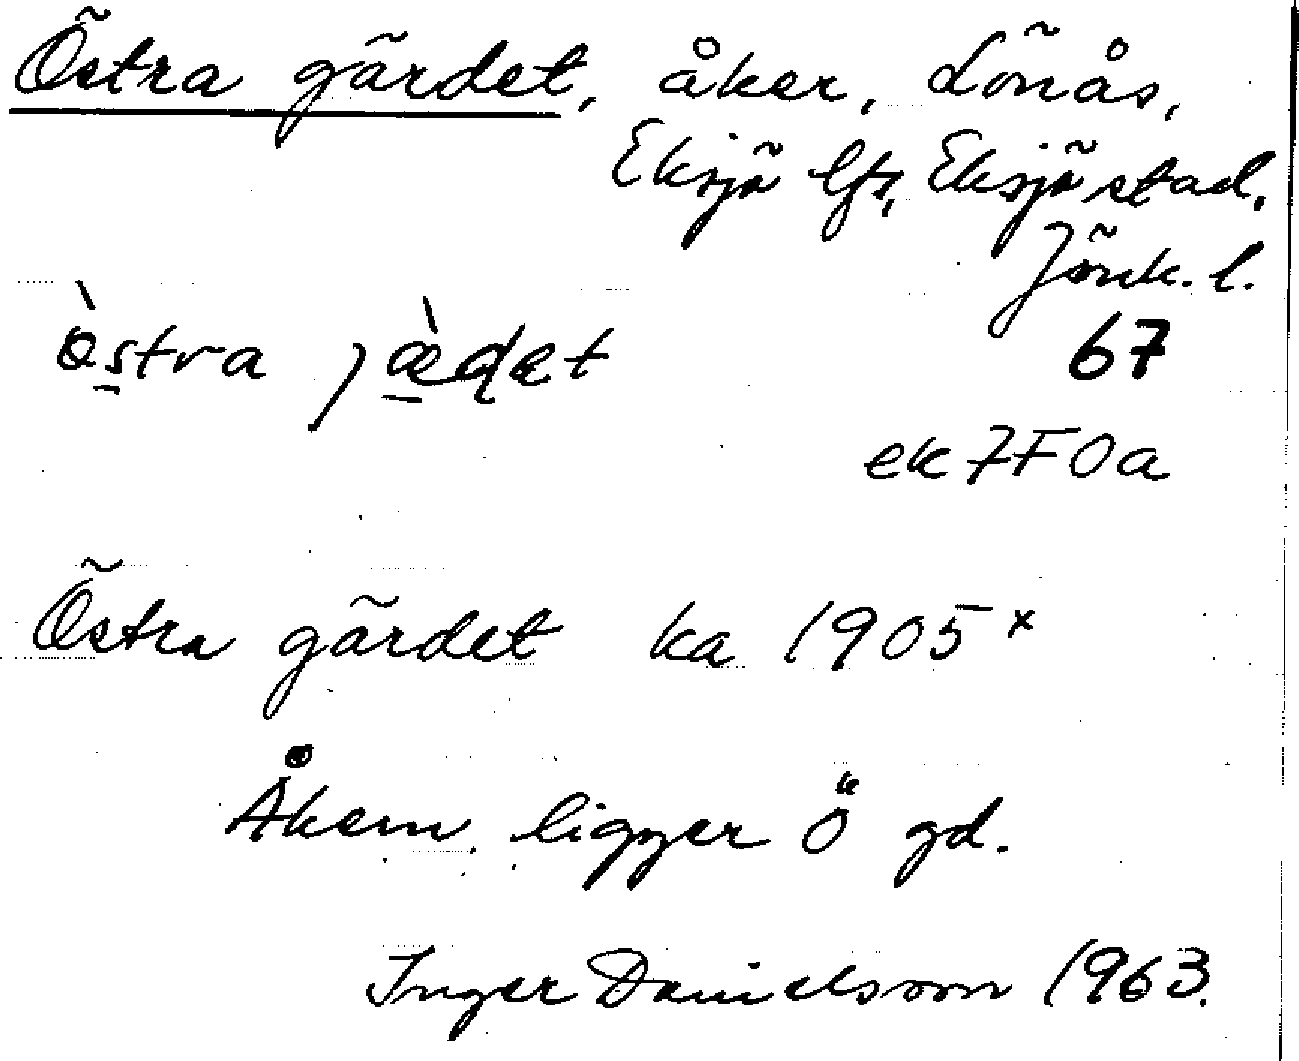 Östra gärdet, åker, Lönås,
Eksjö lfs, Eksjö stad,
Jönk. l.
òstra jæ̀ḍæt
67
ek 7F0a
Östra gärdet ka 1905 x
Åkern ligger Ö gd.
Inger Danielsson 1963.